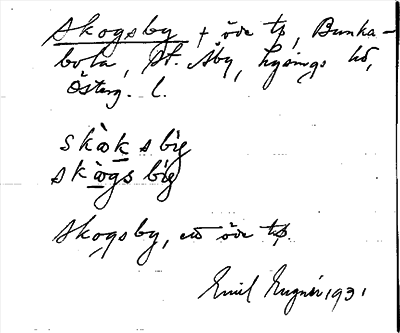 Skogsby + öde tp, Bunka-
bola, St. Åby, Lysings hd,
Österg. l.
skàksby̆
skògsby̆
Skogsby, ett öde tp.
Emil Eugnér 1931